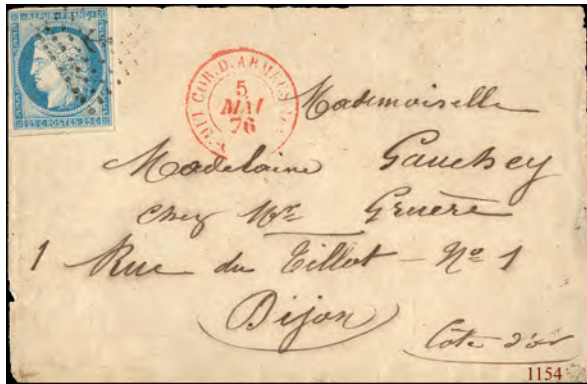 REPUB. FRANC.
25 C POSTES 25 C
COR. D. ARMEES
5
MAI
76
Mademoiselle
Madelaine Gauchey
chez Mr Gruère
1 Rue du Tillot - No 1
Dijon
Côte d'or
1154